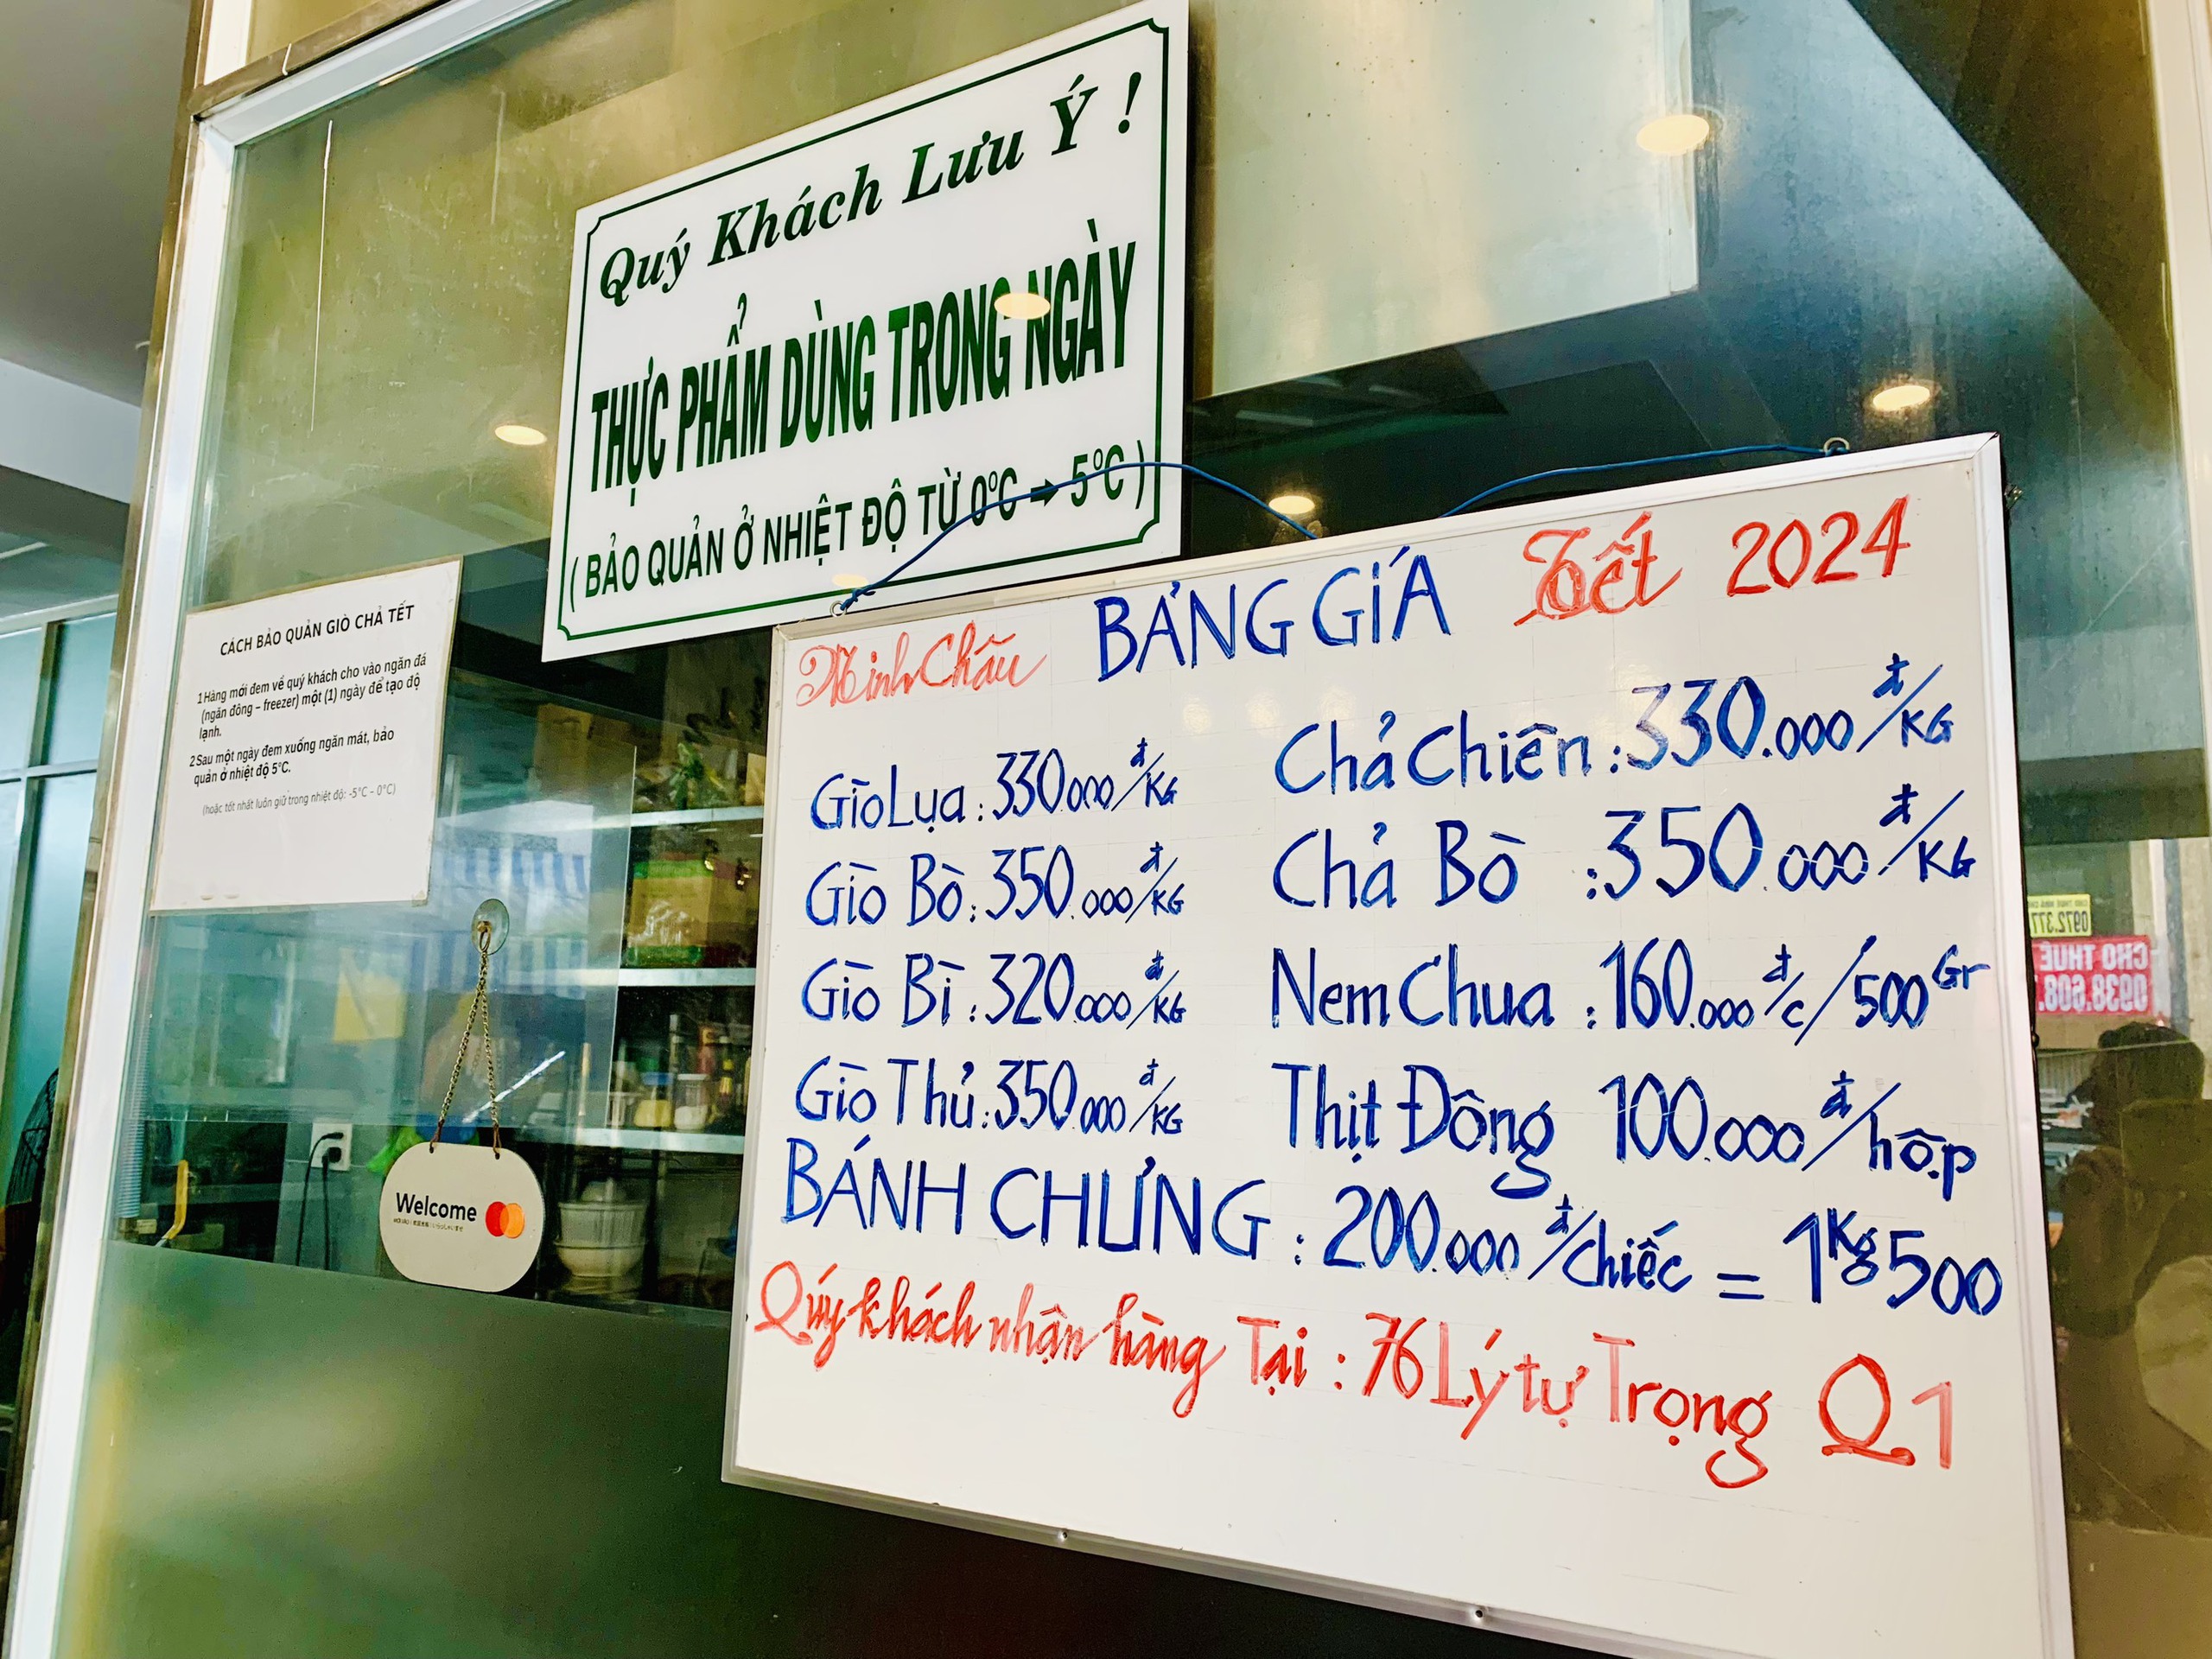 Quý Khách Lưu Ý !
THỰC PHẨM DÙNG TRONG NGÀY
( BẢO QUẢN Ở NHIỆT ĐỘ TỪ 0°C → 5°C )
CÁCH BẢO QUẢN GIÒ CHẢ TẾT
1 Hàng mới đem về quý khách cho vào ngăn đá
(ngăn đông – freezer) một (1) ngày để tạo độ
lạnh.
2 Sau một ngày đem xuống ngăn mát, bảo
quản ở nhiệt độ 5°C.
(hoặc tốt nhất luôn giữ trong nhiệt độ: -5°C – 0°C)
Welcome
Minh Châu BẢNG GIÁ Tết 2024
Giò Lụa : 330.000đ/KG
Giò Bò : 350.000đ/KG
Giò Bì : 320.000đ/KG
Giò Thủ : 350.000đ/KG
Chả Chiên : 330.000đ/KG
Chả Bò : 350.000đ/KG
Nem Chua : 160.000đ/c/500Gr
Thịt Đông 100.000đ/hộp
BÁNH CHƯNG : 200.000đ/chiếc = 1Kg500
Qúy khách nhận hàng Tại : 76 Lý tự Trọng Q1
0972.377
CHO THUÊ
0938.608.